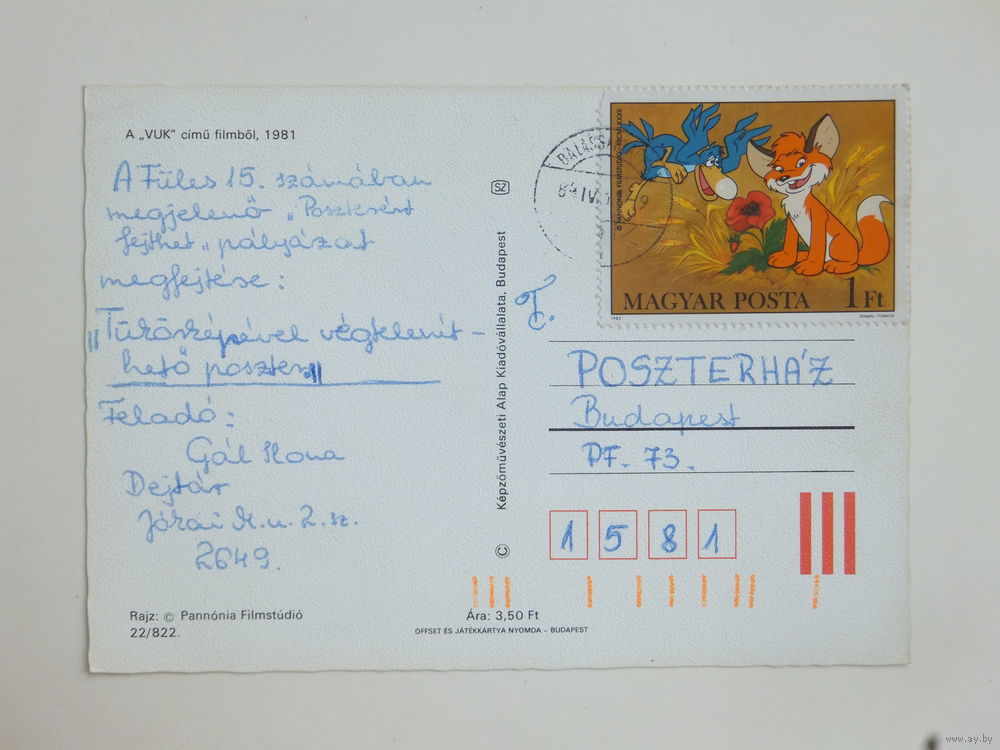 A „VUK” című filmből, 1981
A Füles 15. számában
megjelenő „Poszterért
fejthet„ pályázat
megfejtése:
„Tükörképével végtelenít-
hető poszter„
Feladó:
Gál Ilona
Dejtár
Jókai M. u. 2. sz.
2649.
Rajz: © Pannónia Filmstúdió
22/822.
SZ
© Képzőművészeti Alap Kiadóvállalata, Budapest
Ára: 3,50 Ft
OFFSET ÉS JÁTÉKKÁRTYA NYOMDA – BUDAPEST
BALASSA
© PANNÓNIA FILMSTÚDIÓ • MCMLXXXII
MAGYAR POSTA 1 Ft
1982
T.
POSZTERHÁZ
Budapest
PF. 73.
1 5 8 1
www.ay.by